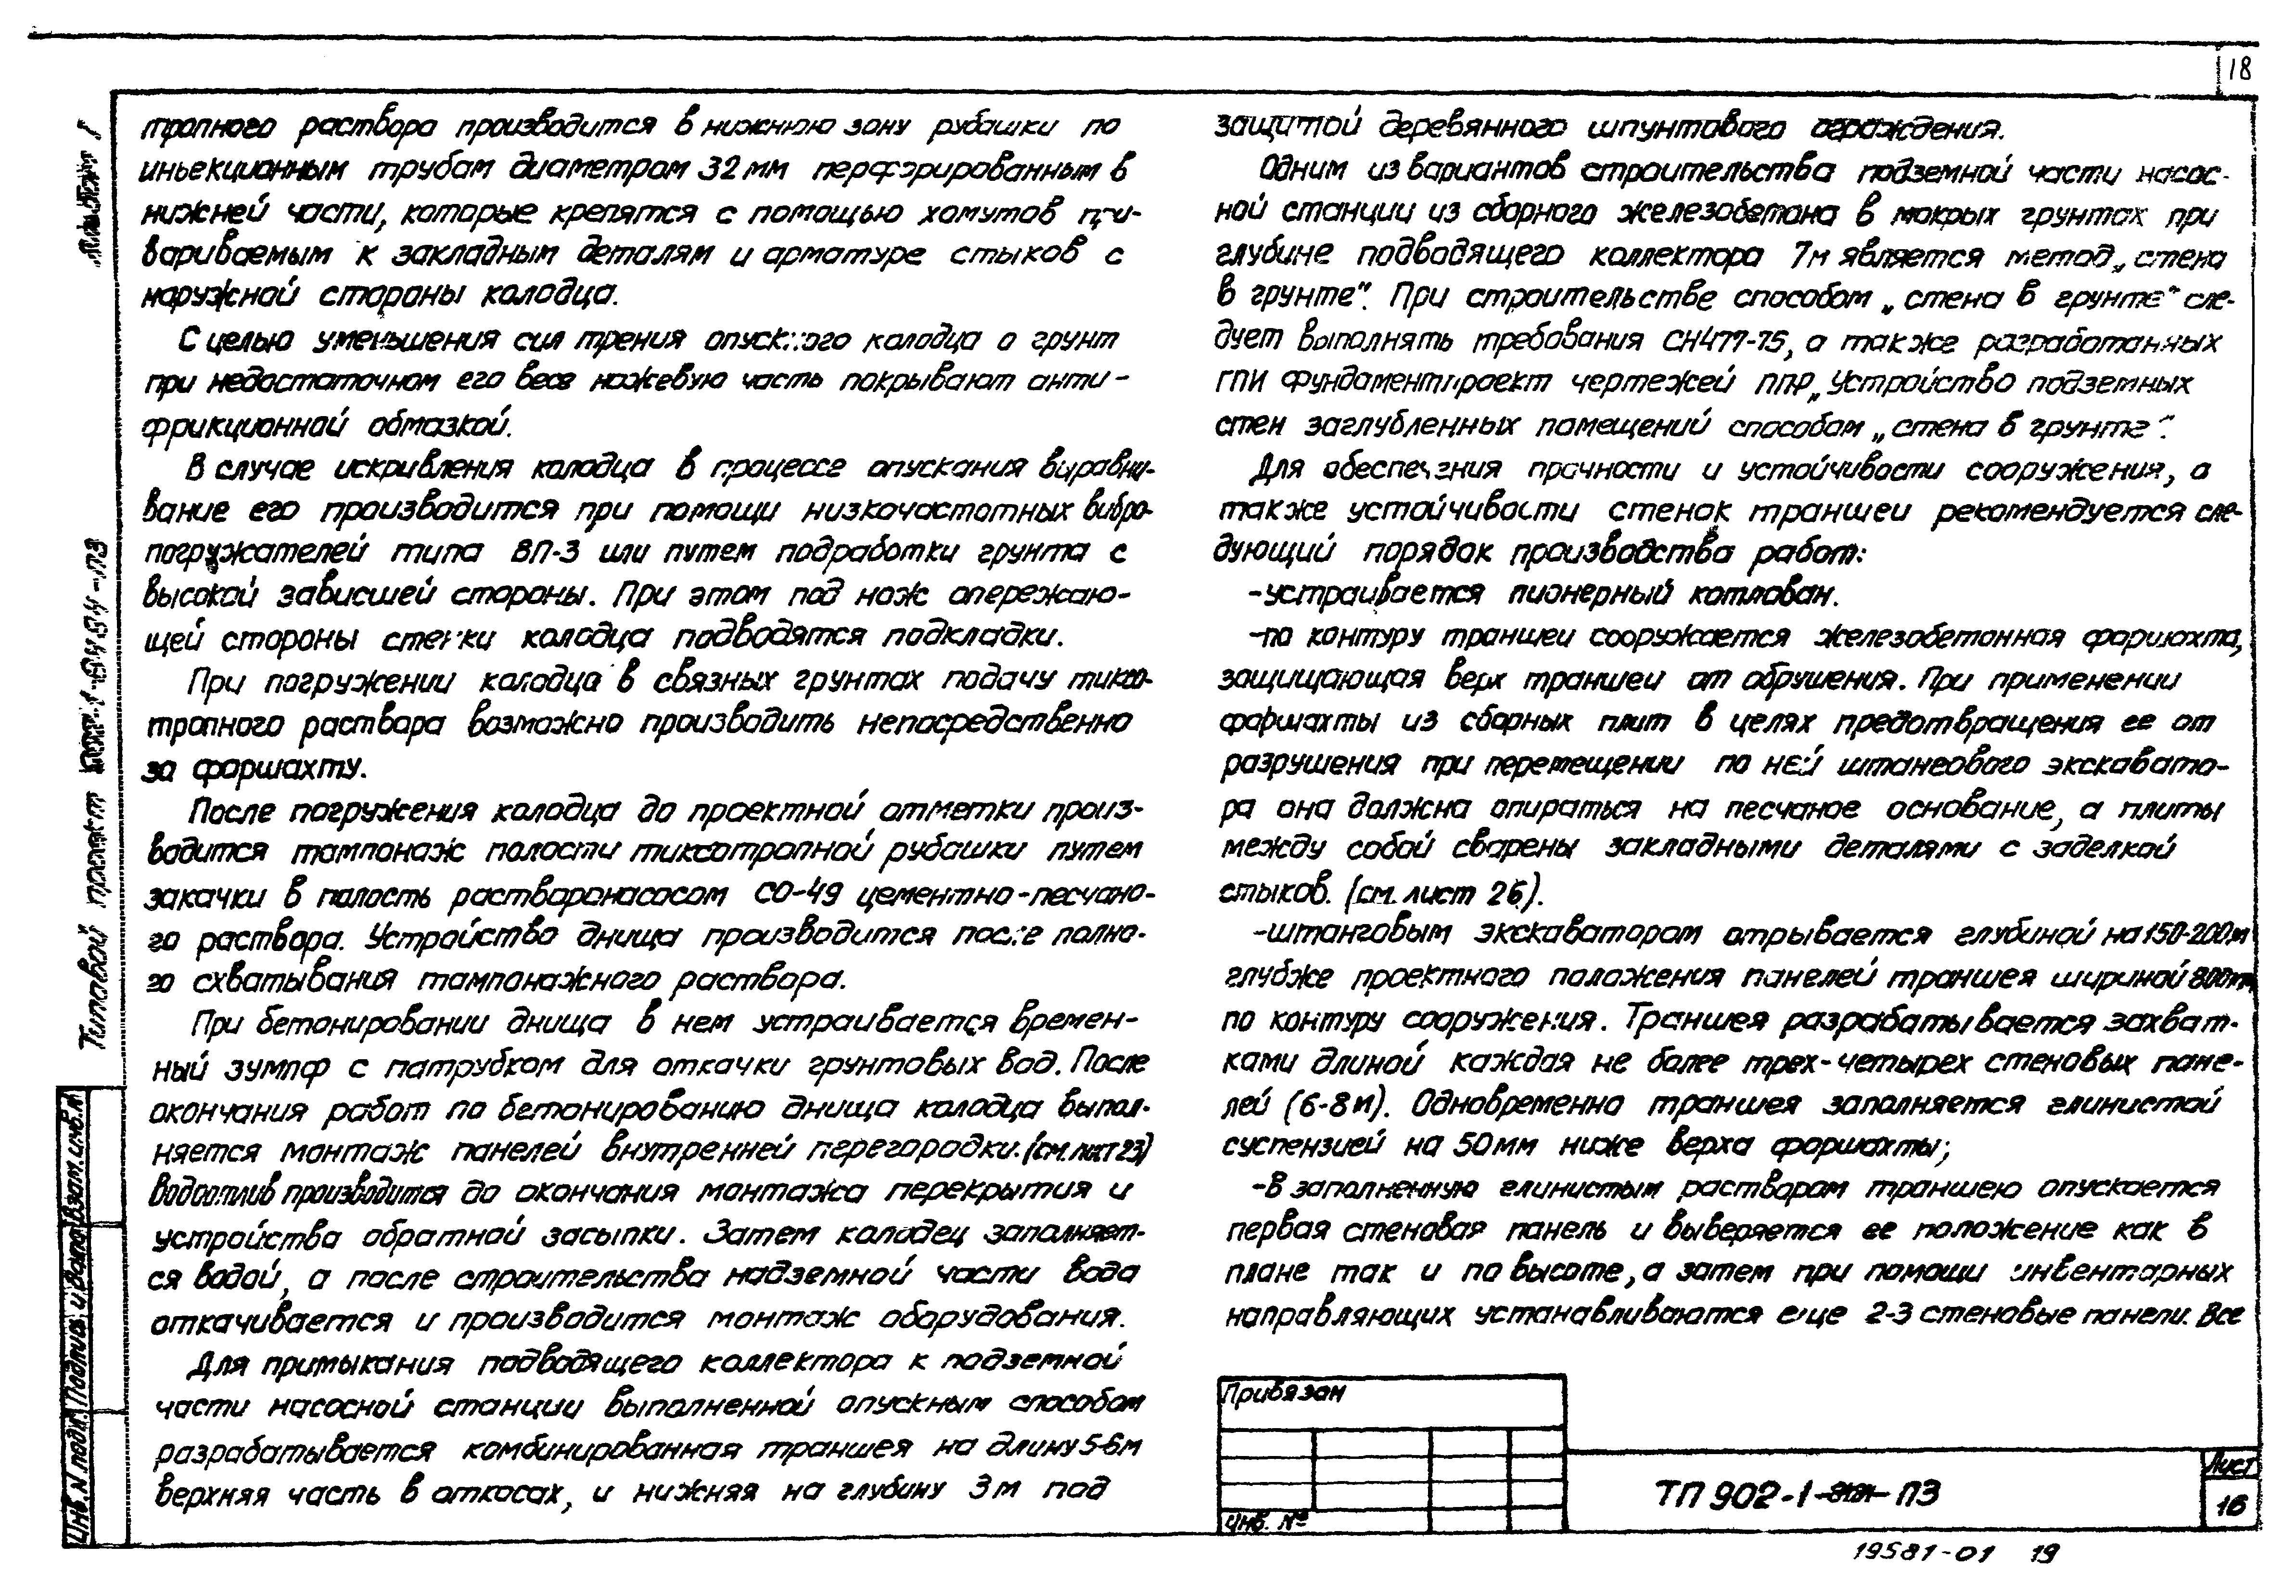 18
тропного раствора производится в нижнюю зону рубашки по
иньекционным трубам диаметром 32 мм перфорированным в
нижней части, которые крепятся с помощью хомутов при-
вариваемым к закладным деталям и арматуре стыков с
наружной стороны колодца.
С целью уменьшения сил трения опускного колодца о грунт
при недостаточном его весе ножевую часть покрывают анти-
фрикционной обмазкой.
В случае искривления колодца в процессе опускания выравни-
вание его производится при помощи низкочастотных вибро-
погружателей типа ВП-3 или путем подработки грунта с
высокой зависшей стороны. При этом под нож опережаю-
щей стороны стенки колодца подводятся подкладки.
При погружении колодца в связных грунтах подачу тиксо-
тропного раствора возможно производить непосредственно
за форшахту.
После погружения колодца до проектной отметки произ-
водится тампонаж полости тиксотропной рубашки путем
закачки в полость растворонасосом СО-49 цементно-песчано-
го раствора. Устройство днища производится после полно-
го схватывания тампонажного раствора.
При бетонировании днища в нем устраивается времен-
ный зумпф с патрубком для откачки грунтовых вод. После
окончания работ по бетонированию днища колодца выпол-
няется монтаж панелей внутренней перегородки. (см. лист 23)
Водоотлив производится до окончания монтажа перекрытия и
устройства обратной засыпки. Затем колодец заполняет-
ся водой, а после строительства надземной части вода
откачивается и производится монтаж оборудования.
Для примыкания подводящего коллектора к подземной
части насосной станции выполненной опускным способом
разрабатывается комбинированная траншея на длину 5-6 м
верхняя часть в откосах, и нижняя на глубину 3 м под
защитой деревянного шпунтового ограждения.
Одним из вариантов строительства подземной части насос-
ной станции из сборного железобетона в мокрых грунтах при
глубине подводящего коллектора 7 м является метод „стена
в грунте". При строительстве способом „стена в грунте" сле-
дует выполнять требования СН 477-75, а также разработанных
ГПИ Фундаментпроект чертежей ППР „Устройство подземных
стен заглубленных помещений способом „стена в грунте".
Для обеспечения прочности и устойчивости сооружения, а
также устойчивости стенок траншеи рекомендуется сле-
дующий порядок производства работ:
-устраивается пионерный котлован.
-по контуру траншеи сооружается железобетонная форшахта,
защищающая верх траншеи от обрушения. При применении
форшахты из сборных плит в целях предотвращения ее от
разрушения при перемещении по ней штангового экскавато-
ра она должна опираться на песчаное основание, а плиты
между собой сварены закладными деталями с заделкой
стыков. (см. лист 26).
-штанговым экскаватором отрывается глубиной на 150-200 м
глубже проектного положения панелей траншея шириной 800 мм
по контуру сооружения. Траншея разрабатывается захват-
ками длиной каждая не более трех-четырех стеновых пане-
лей (6-8 м). Одновременно траншея заполняется глинистой
суспензией на 50 мм ниже верха форшахты;
-В заполненную глинистым раствором траншею опускается
первая стеновая панель и выверяется ее положение как в
плане так и по высоте, а затем при помощи инвентарных
направляющих устанавливаются еще 2-3 стеновые панели. Все
Альбом I
Типовой проект
Инв. N подл. Подпись и дата Взам. инв. N
Привязан
Инв. №
ТП 902-1- ПЗ
Лист
16
19581-01 19